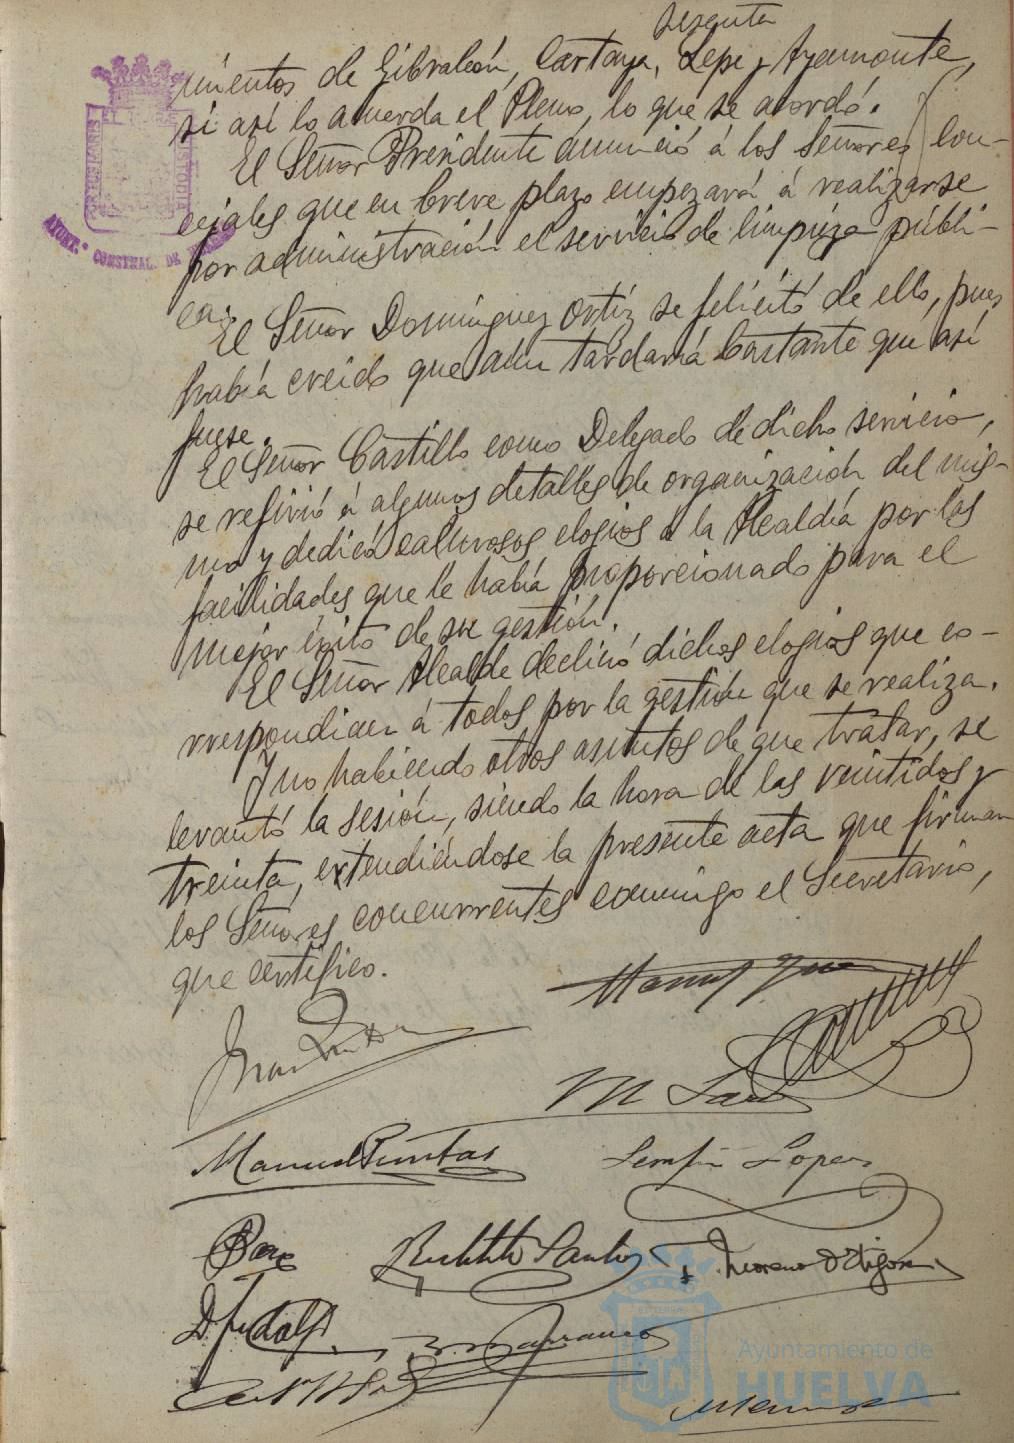 sesenta
mientos de Gibraleón, Cartaya, Lepe y Ayamonte,
si así lo acuerda el Pleno, lo que se acordó.
El Señor Presidente anunció á los Señores Con-
cejales que en breve plazo empezará á realizarse
por administración el servicio de limpieza públi-
ca.
El Señor Domínguez Ortiz se felicitó de ello, pues
había creido que aún tardaría bastante que así
fuese.
El Señor Castillo como Delegado de dicho servicio,
se refirió á algunos detalles de organización del mis-
mo y dedicó calurosos elogios á la Alcaldía por las
facilidades que le había proporcionado para el
mejor éxito de su gestión.
El Señor Alcalde declinó dichos elogios que co-
rrespondían á todos por la gestión que se realiza.
Y no habiendo otros asuntos de que tratar, se
levantó la sesión, siendo la hora de las veintidos y
treinta, extendiéndose la presente acta que firman
los Señores concurrentes conmigo el Secretario,
que certifico.
Manuel
Juan
M
Manuel
Serafín López
Santos
Moreno
AYUNT.º CONSTNAL. DE HUELVA
Ayuntamiento de
HUELVA